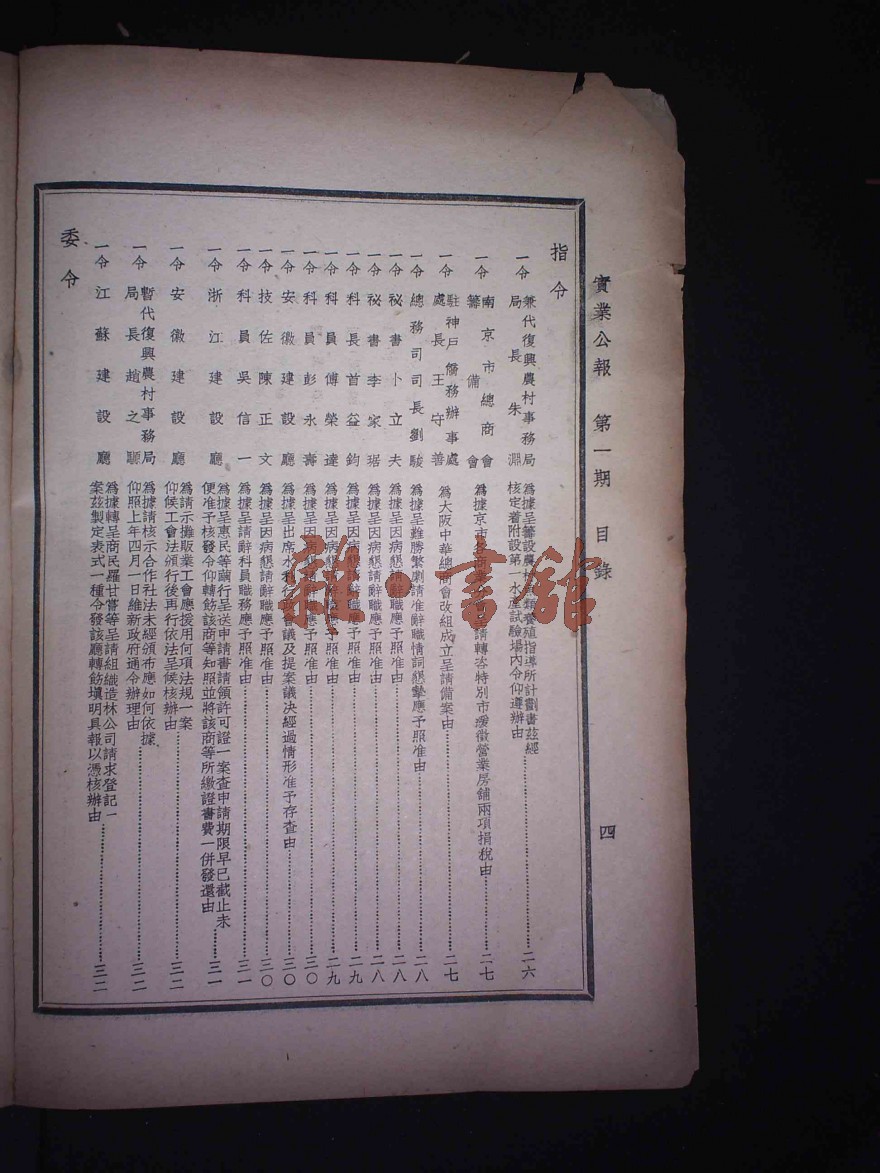 實業公報 第一期 目錄
四
指令
一令 兼代復興農村事務局
局長朱淵
爲據呈籌設農村魚類養殖指導所計劃書茲經
核定着附設第一水產試驗場內令仰遵辦由 二六
一令 南京市總商會
籌備會
爲據京市各商業分會呈請轉咨特別市援徵營業房舖兩項捐稅由 二七
一令 駐神戶僑務辦事處
處長王守善
爲大阪中華總商會改組成立呈請備案由 二七
一令 總務司司長劉駿 爲據呈難勝繁劇請准辭職情詞懇摯應予照准由 二八
一令 秘書卜立夫 爲據呈因病懇請辭職應予照准由 二八
一令 秘書李家琚 爲據呈因病懇請辭職應予照准由 二八
一令 科長首益鈞 爲據呈因病懇請辭職應予照准由 二九
一令 科員傅榮達 爲據呈因病懇請辭職應予照准由 二九
一令 科員彭永壽 爲據呈因病懇請辭職應予照准由 三〇
一令 安徽建設廳 爲據呈出席水利行政會議及提案議決經過情形准予存查由 三〇
一令 技佐陳正文 爲據呈因病懇請辭職應予照准由 三〇
一令 科員吳信一 爲據呈請辭科員職務應予照准由 三一
一令 浙江建設廳 爲據呈惠民等繭行呈送申請書請領許可證一案查申請期限早已截止未
便准予核發令仰轉飭該商等知照並將該商等所繳證書費一併發還由 三一
一令 安徽建設廳 爲請示攤販業工會應援用何項法規一案
仰候工會法頒行後再行依法呈候核辦由 三二
一令 暫代復興農村事務局
局長趙之
爲據請核示合作社法未經頒布應如何依據
仰照上年四月一日維新政府通令辦理由 三二
一令 江蘇建設廳 爲據轉呈商民羅甘嘗等呈請組織造林公司請求登記一
案茲製定表式一種令發該廳轉飭填明具報以憑核辦由 三二
委令